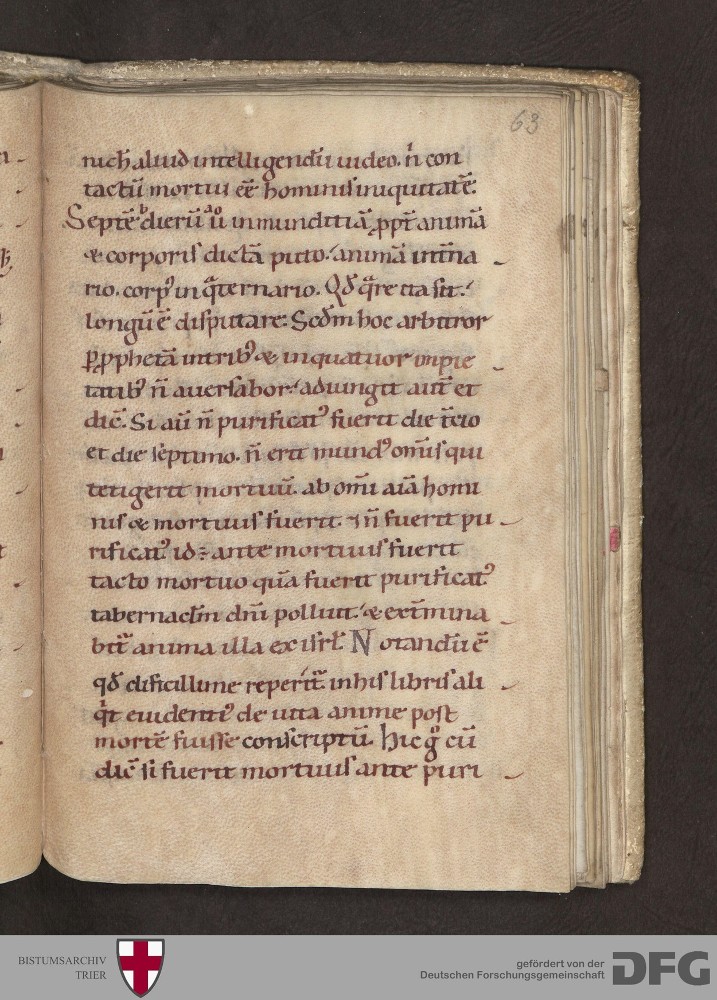 63
nich̄ aliud intelligendū uideo. n̄ con
tactū mortui eē hominis iniquitatē.
Septē dierū aū inmunditiā ꝓpt̄ animā
& corporis dictā puto. animā int̄na
rio. corpꝰ in q̄ternario. Qđ q̄re ita sit.
longū ē disputare. Scd̄m hoc arbitror
ꝑ ꝓphetā in tribꝰ & in quatuor impie
tatibꝰ n̄ auersabor. adiungit aut̄ et
dic̄. Si aū n̄ purificatꝰ fuerit die t̄cio
et die septimo. n̄ erit mundꝰ om̄is qui
tetigerit mortuū. ab om̄i aīa homi
nis & mortuus fuerit. & n̄ fuerit pu
rificatꝰ id ÷ ante mortuus fuerit
tacto mortuo quā fuerit purificatꝰ
tabernaclm̄ dn̄i polluit. & ext̄mina
bit᷑ anima illa ex isrl̄. Notandū ē
qđ dificillime reperit᷑ in his libris ali
q̇t euidentiꝰ de uita anime post
mortē fuisse conscriptū. Hic g̊ cū
dic̄ si fuerit mortuus ante puri
BISTUMSARCHIV
TRIER
gefördert von der
Deutschen Forschungsgemeinschaft
DFG